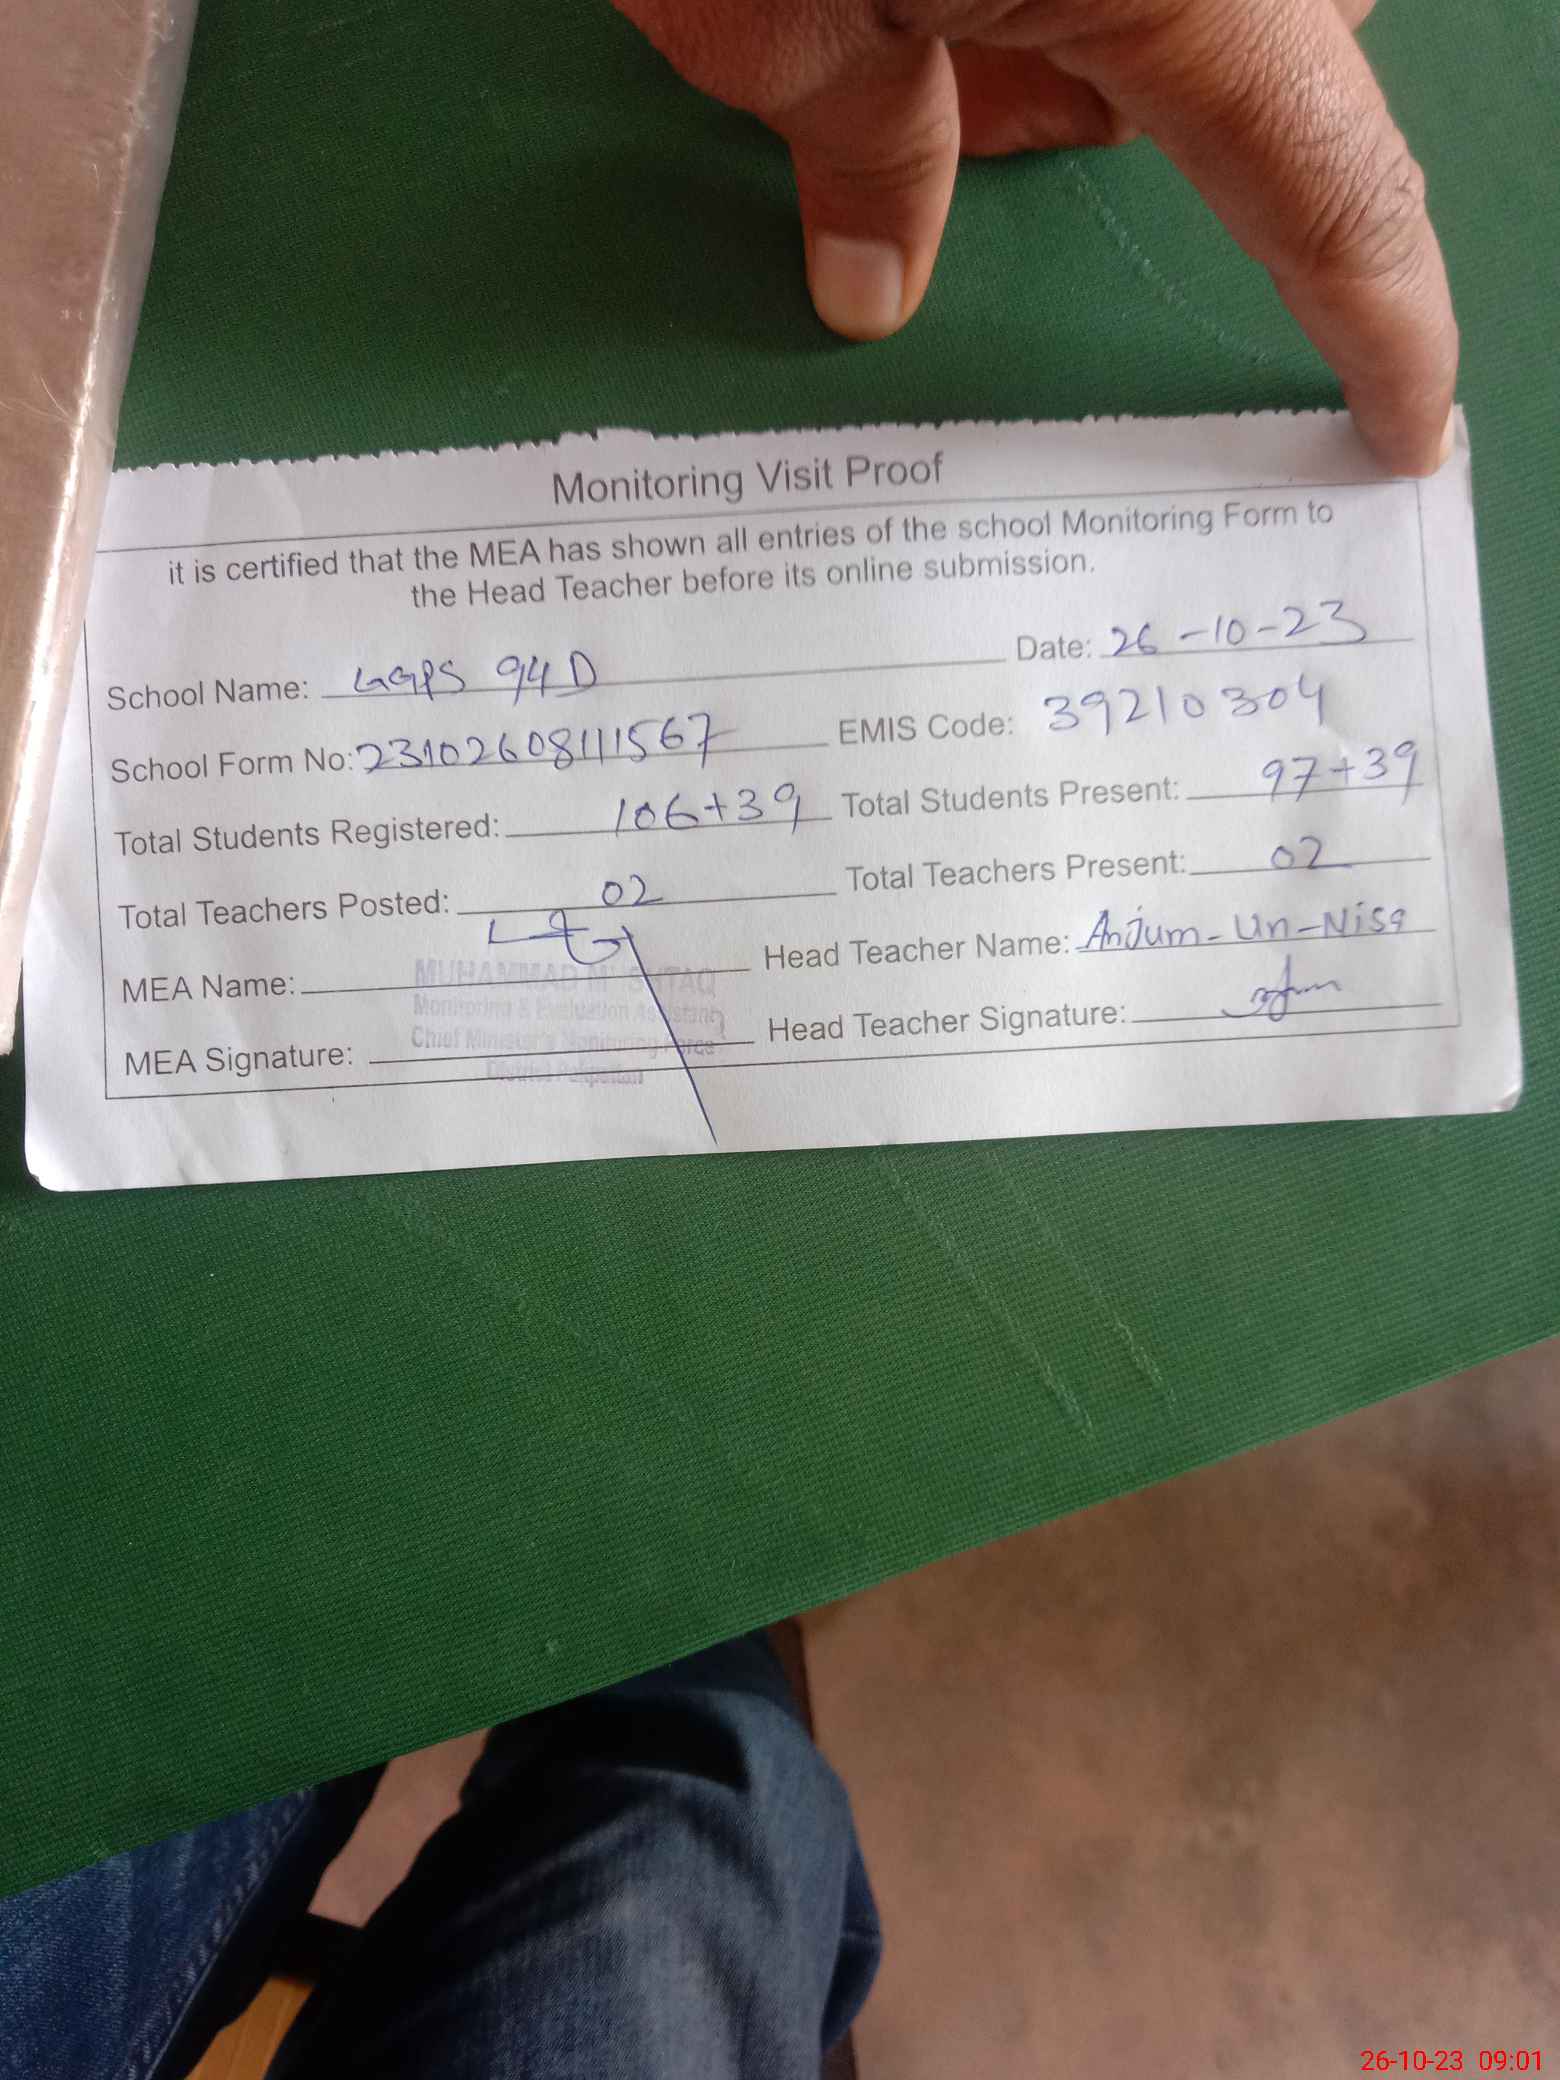 Monitoring Visit Proof
it is certified that the MEA has shown all entries of the school Monitoring Form to
the Head Teacher before its online submission.
School Name: GGPS 94 D Date: 26-10-23
School Form No: 23102608111567 EMIS Code: 39210304
Total Students Registered: 106+39 Total Students Present: 97+39
Total Teachers Posted: 02 Total Teachers Present: 02
MEA Name: Head Teacher Name: Anjum-Un-Nisa
MUHAMMAD MUSHTAQ
Monitoring & Evaluation Assistant
Chief Minister's Monitoring Force
District Pakpattan
MEA Signature: Head Teacher Signature:
26-10-23 09:01